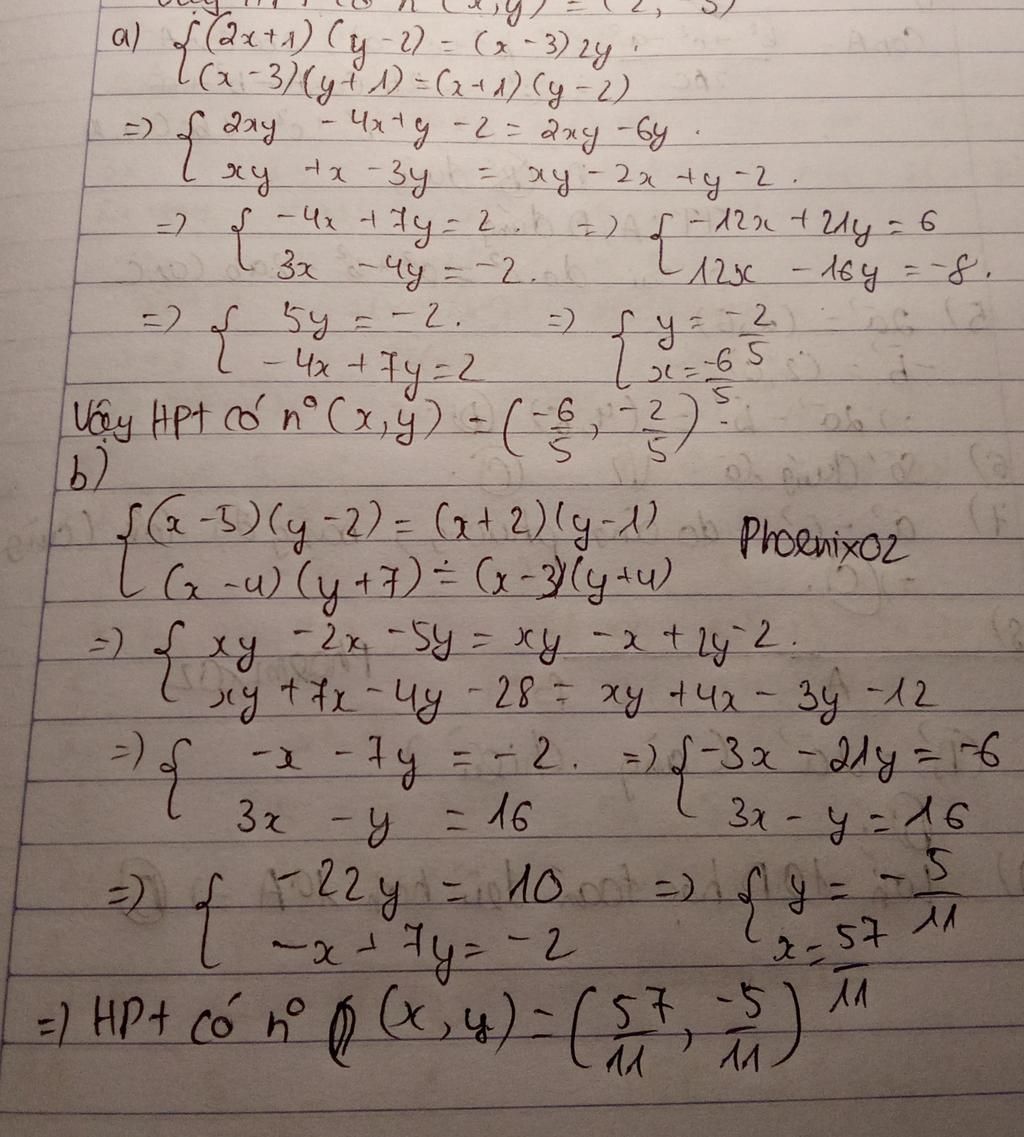 a) { (2x+1)(y-2) = (x-3)2y.
(x-3)(y+1) = (x+1)(y-2)
=> { 2xy - 4x + y - 2 = 2xy - 6y.
xy + x - 3y = xy - 2x + y - 2.
=> { -4x + 7y = 2. => { -12x + 21y = 6
3x - 4y = -2. 12x - 16y = -8.
=> { 5y = -2. => { y = -2/5
-4x + 7y = 2 x = -6/5
Vậy HPt có n° (x,y) = (-6/5, -2/5).
b)
{ (x-5)(y-2) = (x+2)(y-1)
(x-4)(y+7) = (x-3)(y+4)
Phoenix02
=> { xy - 2x - 5y = xy - x + 2y - 2.
xy + 7x - 4y - 28 = xy + 4x - 3y - 12
=> { -x - 7y = -2. => { -3x - 21y = -6
3x - y = 16 3x - y = 16
=> { -22y = 10 => { y = -5/11
-x + 7y = -2 x = 57/11
=> HPt có n° (x,y) = (57/11, -5/11)